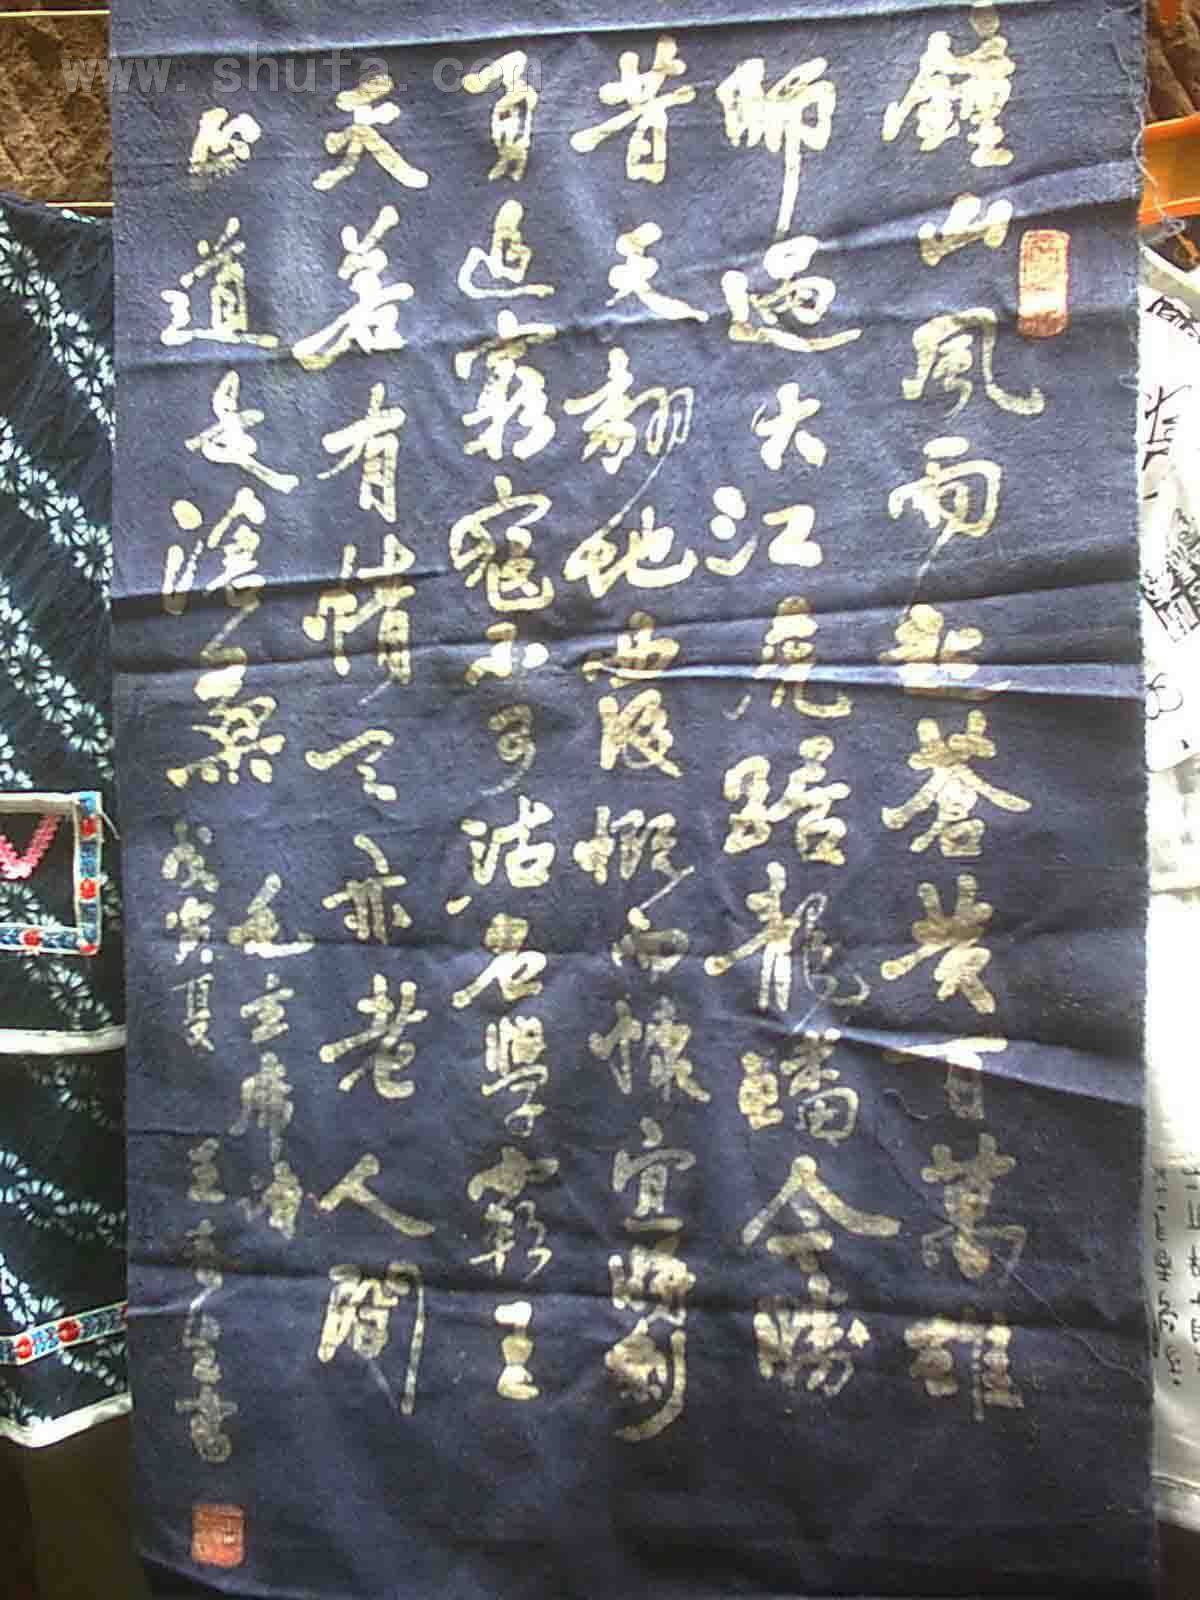 www.shufa.com
鐘山風雨起蒼黃百萬雄
師過大江虎踞龍蟠今勝
昔天翻地覆慨而慷宜將剩
勇追窮寇不可沽名學霸王
天若有情天亦老人間
正道是滄桑
毛主席詩
戊寅夏 書